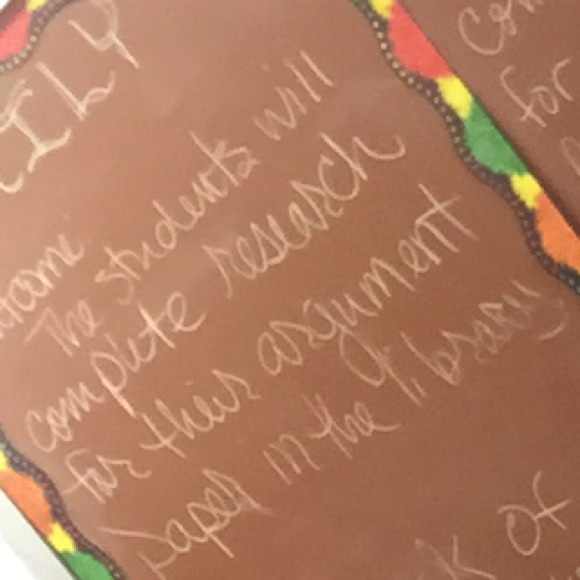 The students will
complete research
for their argument
paper in the library
Con
for
k of